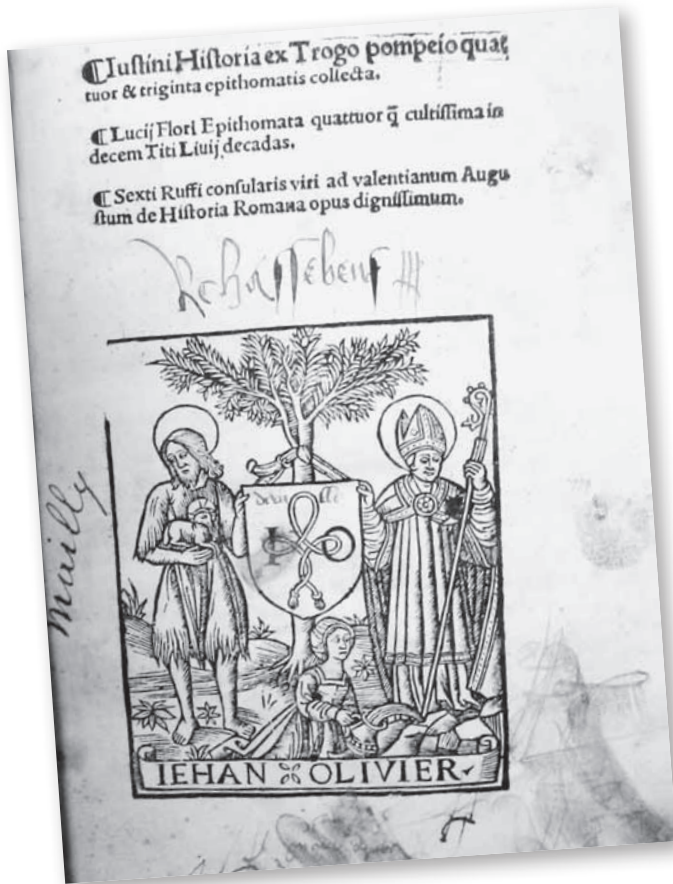 ¶Iuſtini Hiſtoria ex Trogo pompeio quat
tuor & triginta epithomatis collecta.
¶ Lucij Flori Epithomata quattuor q̃ cultiſſima in
decem Titi Liuij decadas.
¶ Sexti Ruffi conſularis viri ad valentianum Augu
ſtum de Hiſtoria Romana opus digniſſimum.
mailly
IEHAN OLIVIER